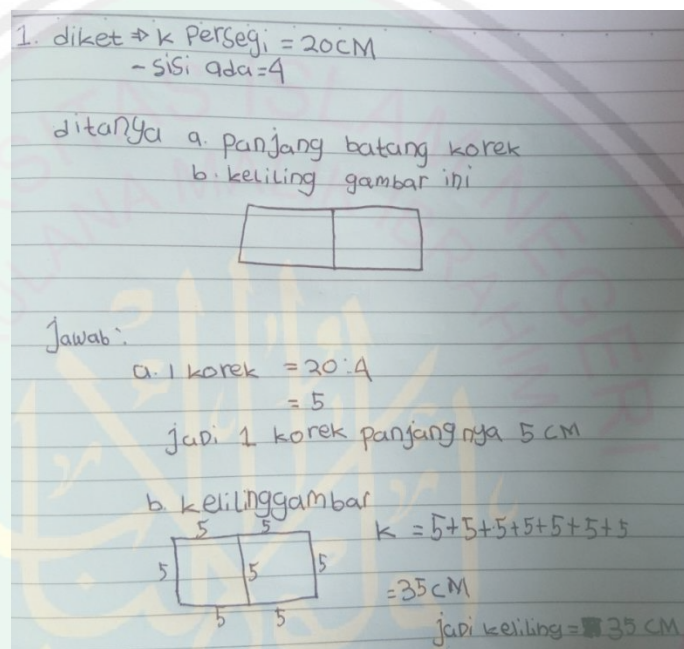 1. diket ⇒ k Persegi = 20CM
- sisi ada=4
ditanya a. panjang batang korek
b. keliling gambar ini
Jawab:
a. 1 korek = 20:4
= 5
jadi 1 korek panjangnya 5 CM
b. kelilinggambar
5 5
5 5 5
5 5
K = 5+5+5+5+5+5+5
=35CM
jadi keliling = 35 CM